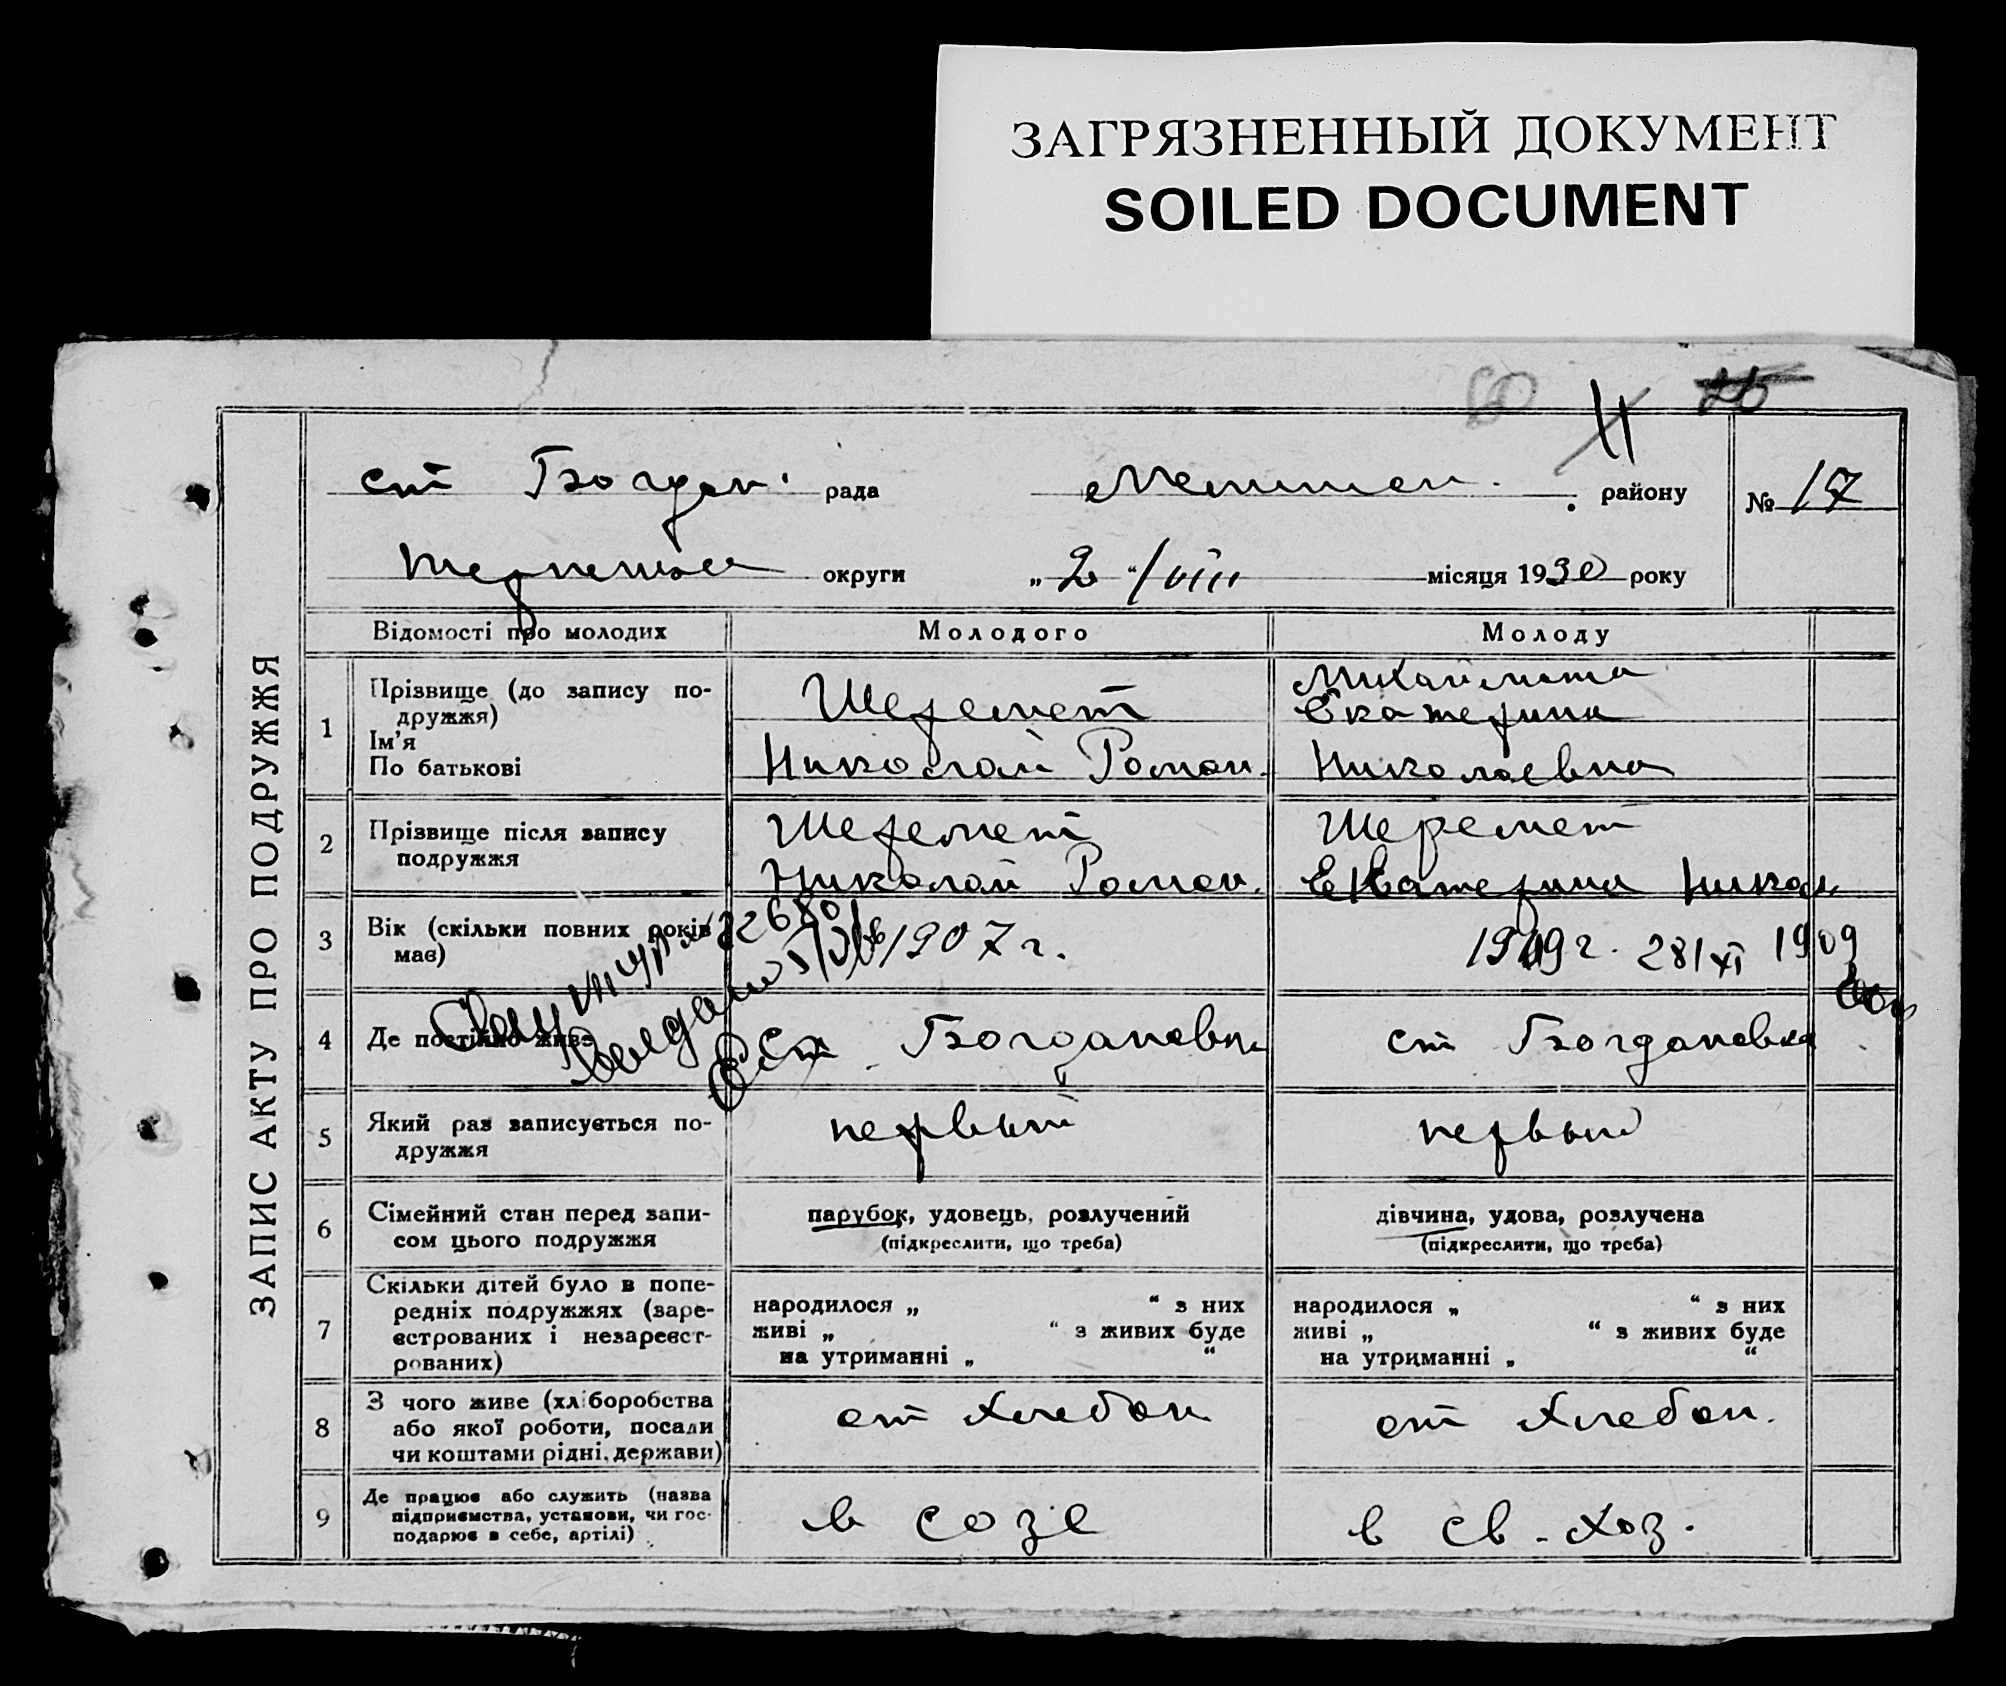 ЗАГРЯЗНЕННЫЙ ДОКУМЕНТ
SOILED DOCUMENT
60 11 26
ЗАПИС АКТУ ПРО ПОДРУЖЖЯ
ст Богдан. рада района
№ 17
округи „2“/VIII місяця 1930 року
Відомості про молодих Молодого Молоду
1 Прізвище (до запису подружжя)
Ім'я
По батькові
Шеремет
Николай Роман.
Михайлюта
Екатерина
Николаевна
2 Прізвище після запису
подружжя
Шеремет
Николай Роман.
Шеремет
Екатерина Никол
3 Вік (скільки повних років
має)
1907 г.
1909 г. 28/XI 1909
4 Де постійно живе
Ст. Богдановки
ст Богдановка
5 Який раз записується по-
дружжя
первый
первый
6 Сімейний стан перед запи-
сом цього подружжя
парубок, удовець, розлучений
(підкреслити, що треба)
дівчина, удова, розлучена
(підкреслити, що треба)
7 Скільки дітей було в попе-
редніх подружжях (заре-
єстрованих і незареєст-
рованих)
народилося „ “ з них
живі „ “ з живих буде
на утриманні „ “
народилося „ “ з них
живі „ “ з живих буде
на утриманні „ “
8 З чого живе (хліборобства
або якої роботи, посади
чи коштами рідні, держави)
от хлебоп
от хлебоп.
9 Де працює або служить (назва
підприємства, установи, чи гос-
подарює в себе, артілі)
в созе
в св.-хоз.